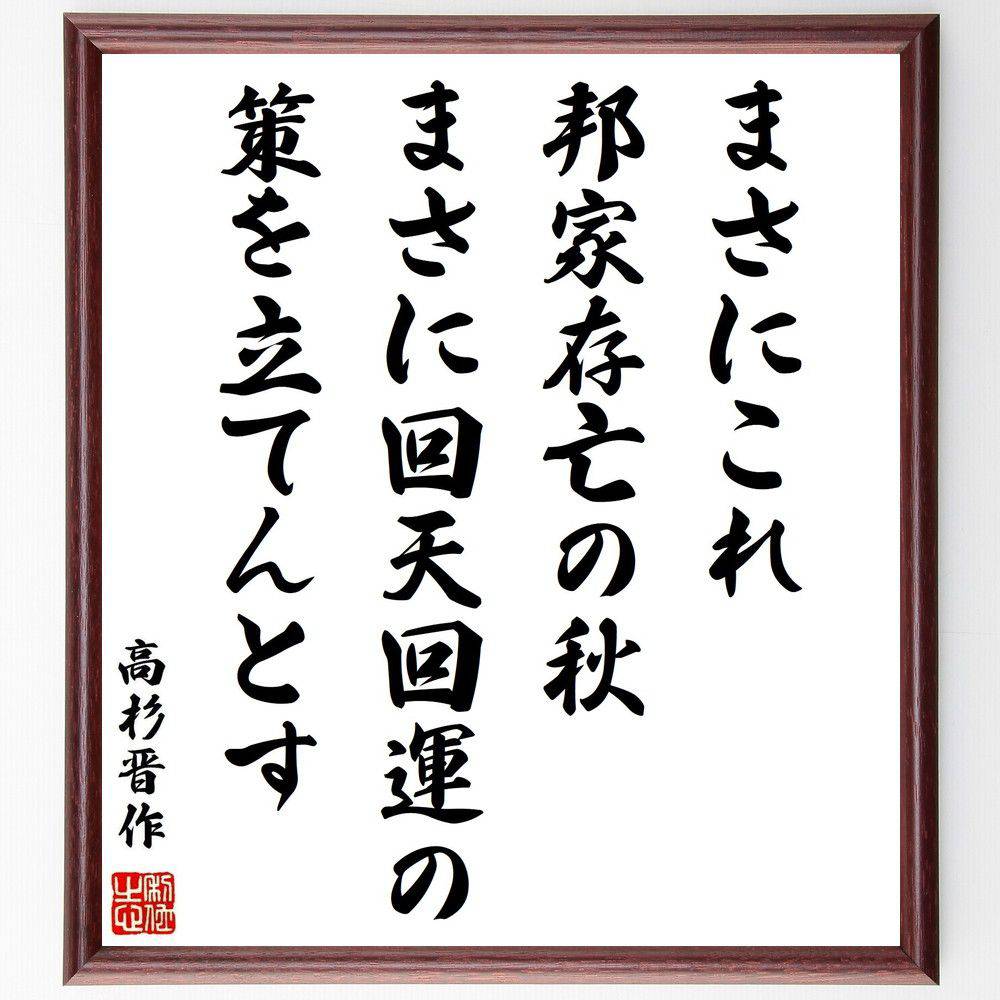 まさにこれ
邦家存亡の秋
まさに回天回運の
策を立てんとす
高杉晋作